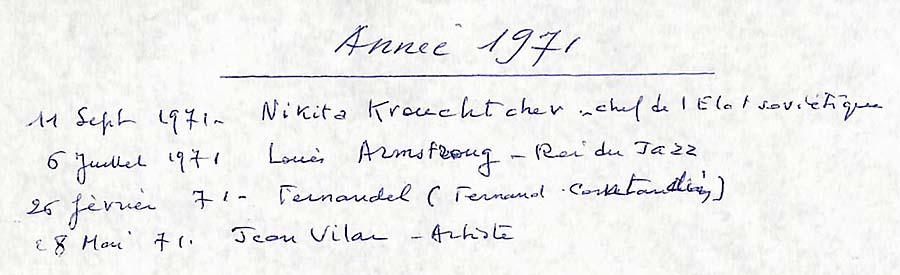 Année 1971
11 Sept 1971- Nikita Krouchtchev - chef de l Etat soviétique
6 Juillet 1971 Louis Armstrong - Roi du Jazz
26 février 71- Fernandel (Fernand
28 Mai 71. Jean Vilar - Artiste